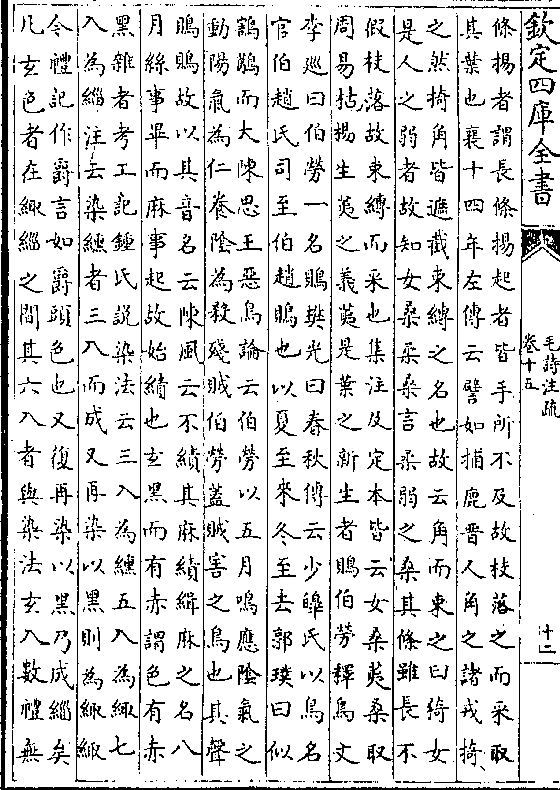 欽定四庫全書
毛詩注疏
卷十五
十二
條揚者謂長條揚起者皆手所不及故枝落之而采取
其葉也襄十四年左傳云譬如捕鹿晉人角之諸戎掎
之然掎角皆遮截束縛之名也故云角而束之曰猗女
是人之弱者故知女桑柔桑言柔弱之桑其條雖長不
假枝落故束縛而采也集注及定本皆云女桑荑桑取
周易枯楊生荑之義荑是葉之新生者鵙伯勞釋鳥文
李廵曰伯勞一名鵙樊光曰春秋傳云少皞氏以鳥名
官伯趙氏司至伯趙鵙也以夏至來冬至去郭璞曰似
鶷鶡而大陳思王惡鳥論云伯勞以五月鳴應陰氣之
動陽氣為仁養陰為殺殘賊伯勞蓋賊害之鳥也其聲
鵙鵙故以其音名云陳風云不績其麻績緝麻之名八
月絲事畢而麻事起故始績也玄黑而有赤謂色有赤
黑雜者考工記鍾氏説染法云三入為纁五入為緅七
入為緇注云染纁者三入而成又再染以黑則為緅緅
今禮記作爵言如爵頭色也又復再染以黑乃成緇矣
凡玄色者在緅緇之間其六入者與染法玄入數禮無